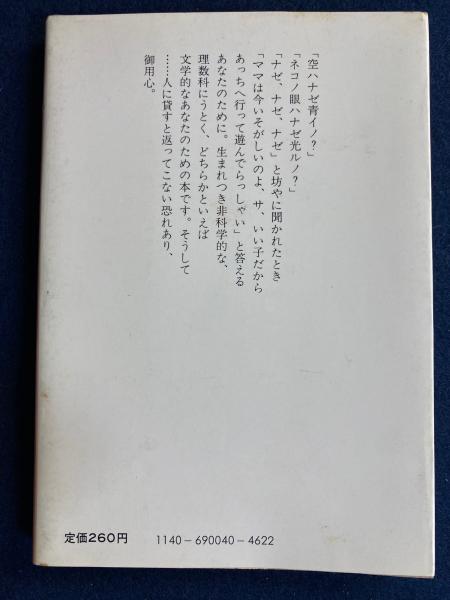 「空ハナゼ青イノ？」
「ネコノ眼ハナゼ光ルノ？」
「ナゼ、ナゼ、ナゼ」と坊やに聞かれたとき
「ママは今いそがしいのよ、サ、いい子だから
あっちへ行って遊んでらっしゃい」と答える
あなたのために。生まれつき非科学的な、
理数科にうとく、どちらかといえば
文学的なあなたのための本です。そうして
……人に貸すと返ってこない恐れあり、
御用心。
定価260円
1140－690040－4622